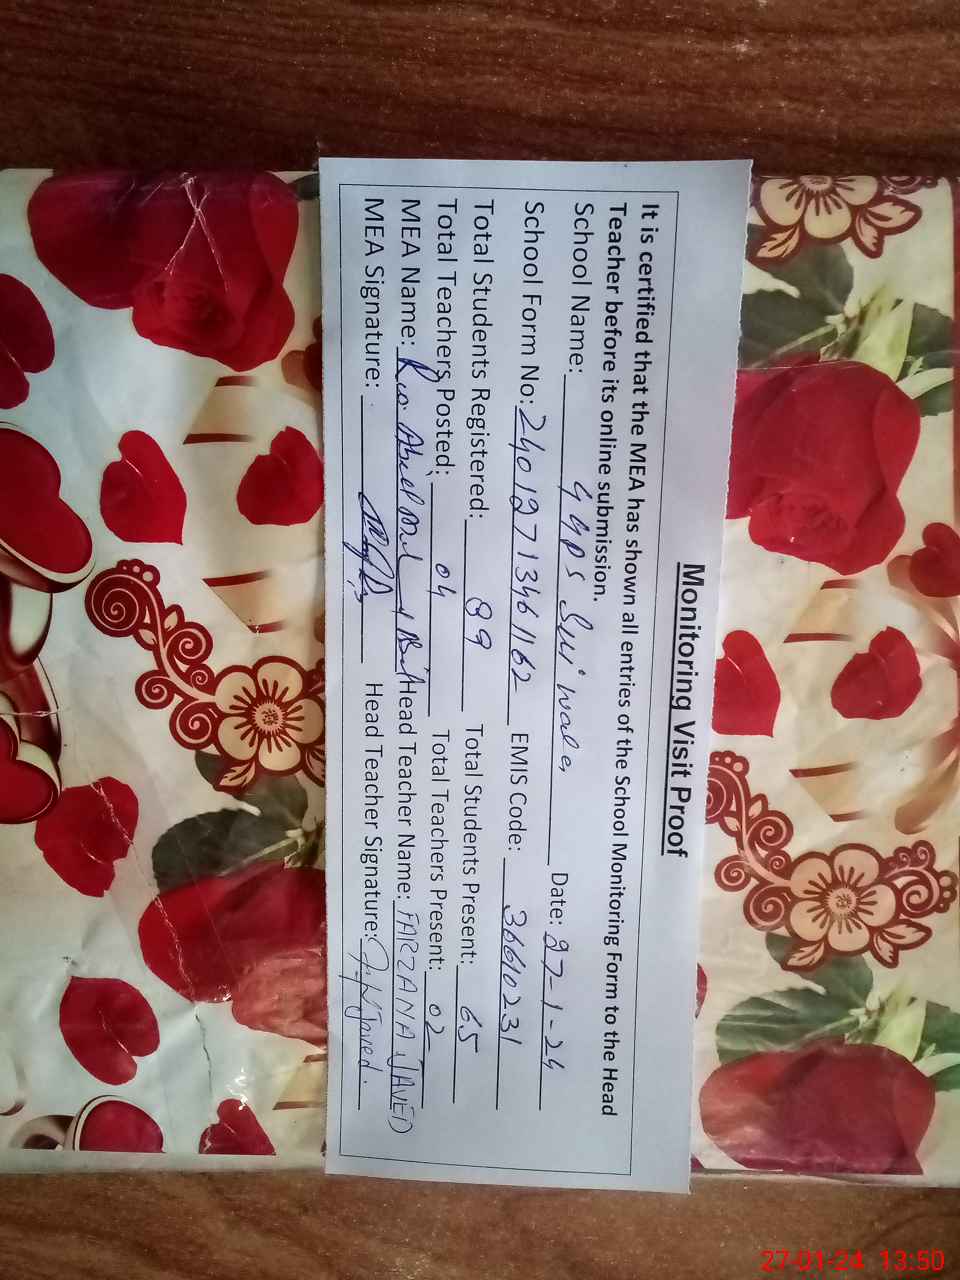 Monitoring Visit Proof
It is certified that the MEA has shown all entries of the School Monitoring Form to the Head
Teacher before its online submission.
School Name: GGPS Sui wala Date: 27-1-24
School Form No: 24012713461162 EMIS Code: 36610231
Total Students Registered: 89 Total Students Present: 65
Total Teachers Posted: 04 Total Teachers Present: 02
MEA Name: Head Teacher Name: FARZANA JAVED
MEA Signature: Head Teacher Signature: Javed.
27-01-24 13:50